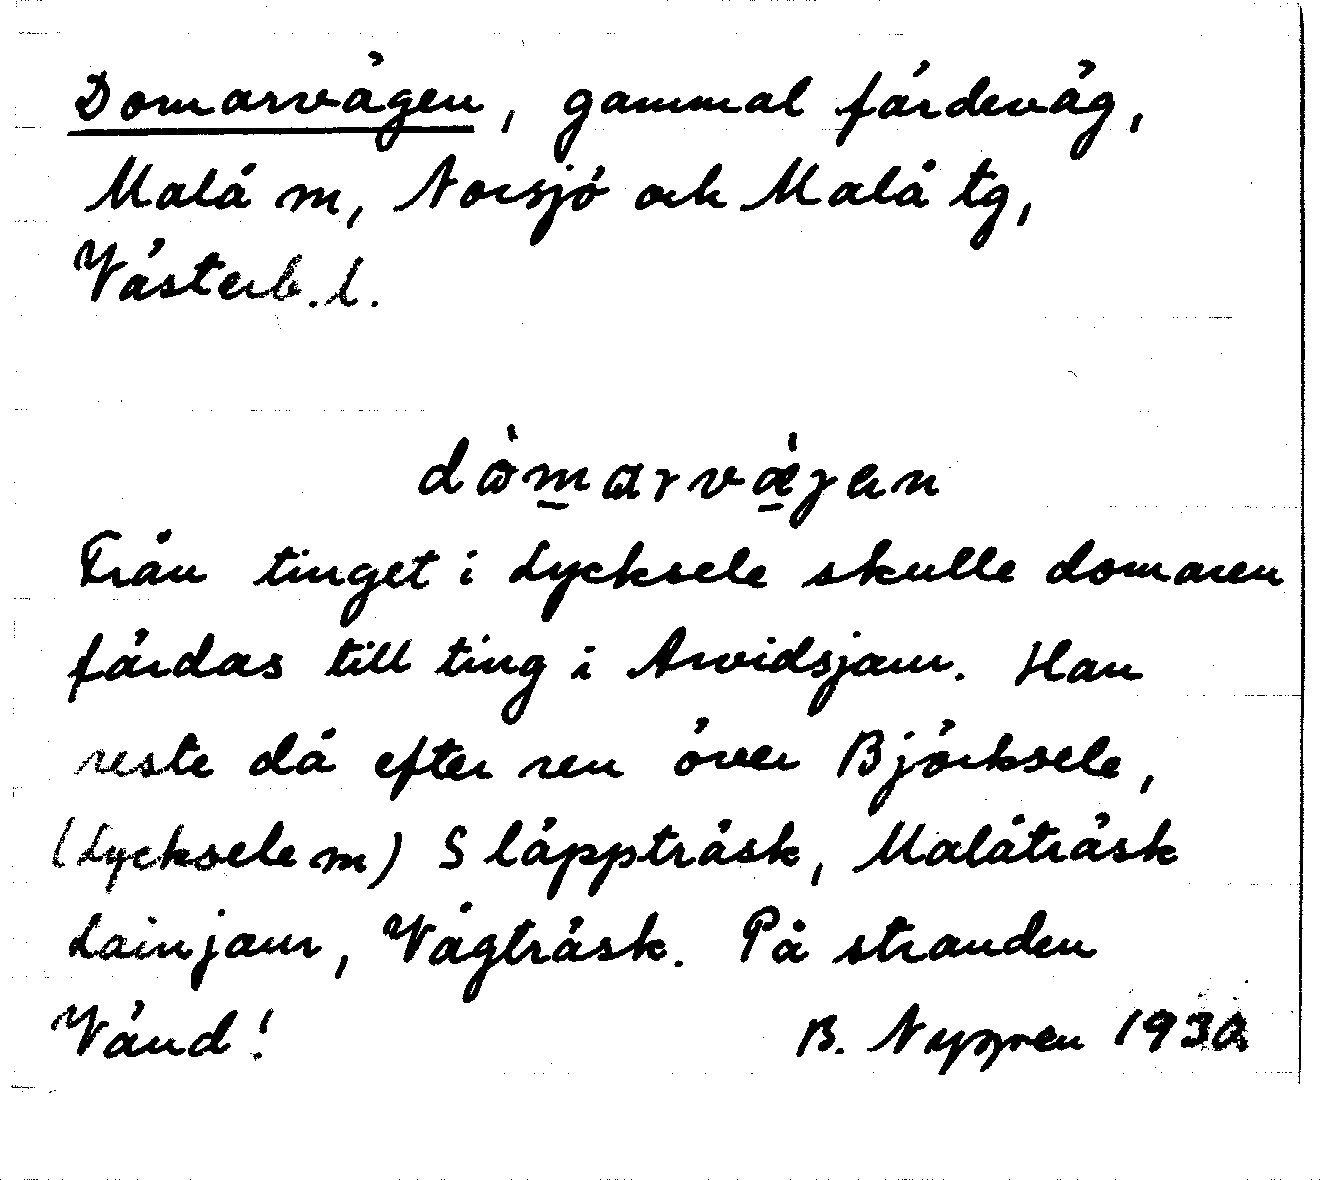 Domarvägen, gammal färdeväg,
Malå m, Norsjö och Malå tg,
Västerb. l.
Från tinget i Lycksele skulle domaren
färdas till ting i Arvidsjaur. Han
reste då efter ren över Björksele,
(Lycksele m) Släppträsk, Malåträsk
Lainjaur, Vägträsk. På stranden
Vänd! B. Nygren